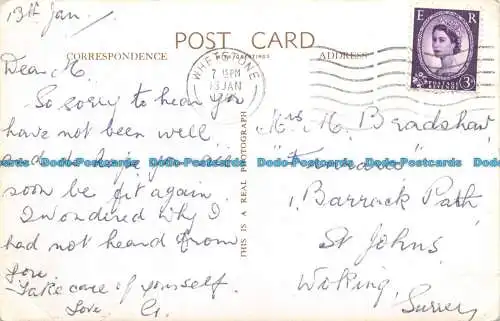 13th Jan/
POST CARD
CORRESPONDENCE
ADDRESS
E R
POSTAGE REVENUE
3D
WHETSTONE
7 15PM
13 JAN
Dear M.
So sorry to hear you
have not been well
and do hope you will
soon be fit again.
I wondered why I
had not heard from
you.
Take care of yourself.
Love G.
THIS IS A REAL PHOTOGRAPH
Mrs M. Bradshaw
1, Barrack Path
St Johns
Woking,
Surrey
Dodo-Postcards Dodo-Postcards Dodo-Postcards Dodo-Postcards Dodo-Postcards